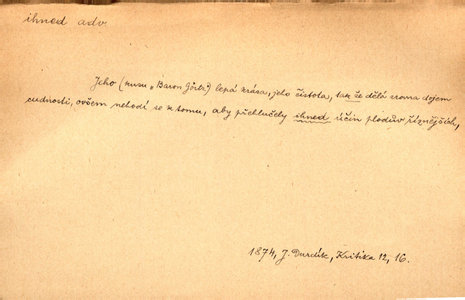 ihned adv.
Jeho (kusu „Baron Görtz") lepá krása, jeho čistota, tak že dělá zrovna dojem
cudnosti, ovšem nehodí se k tomu, aby přehlučely ihned účin plodův říznějších,
1874, J. Durdík, Kritika 12, 16.